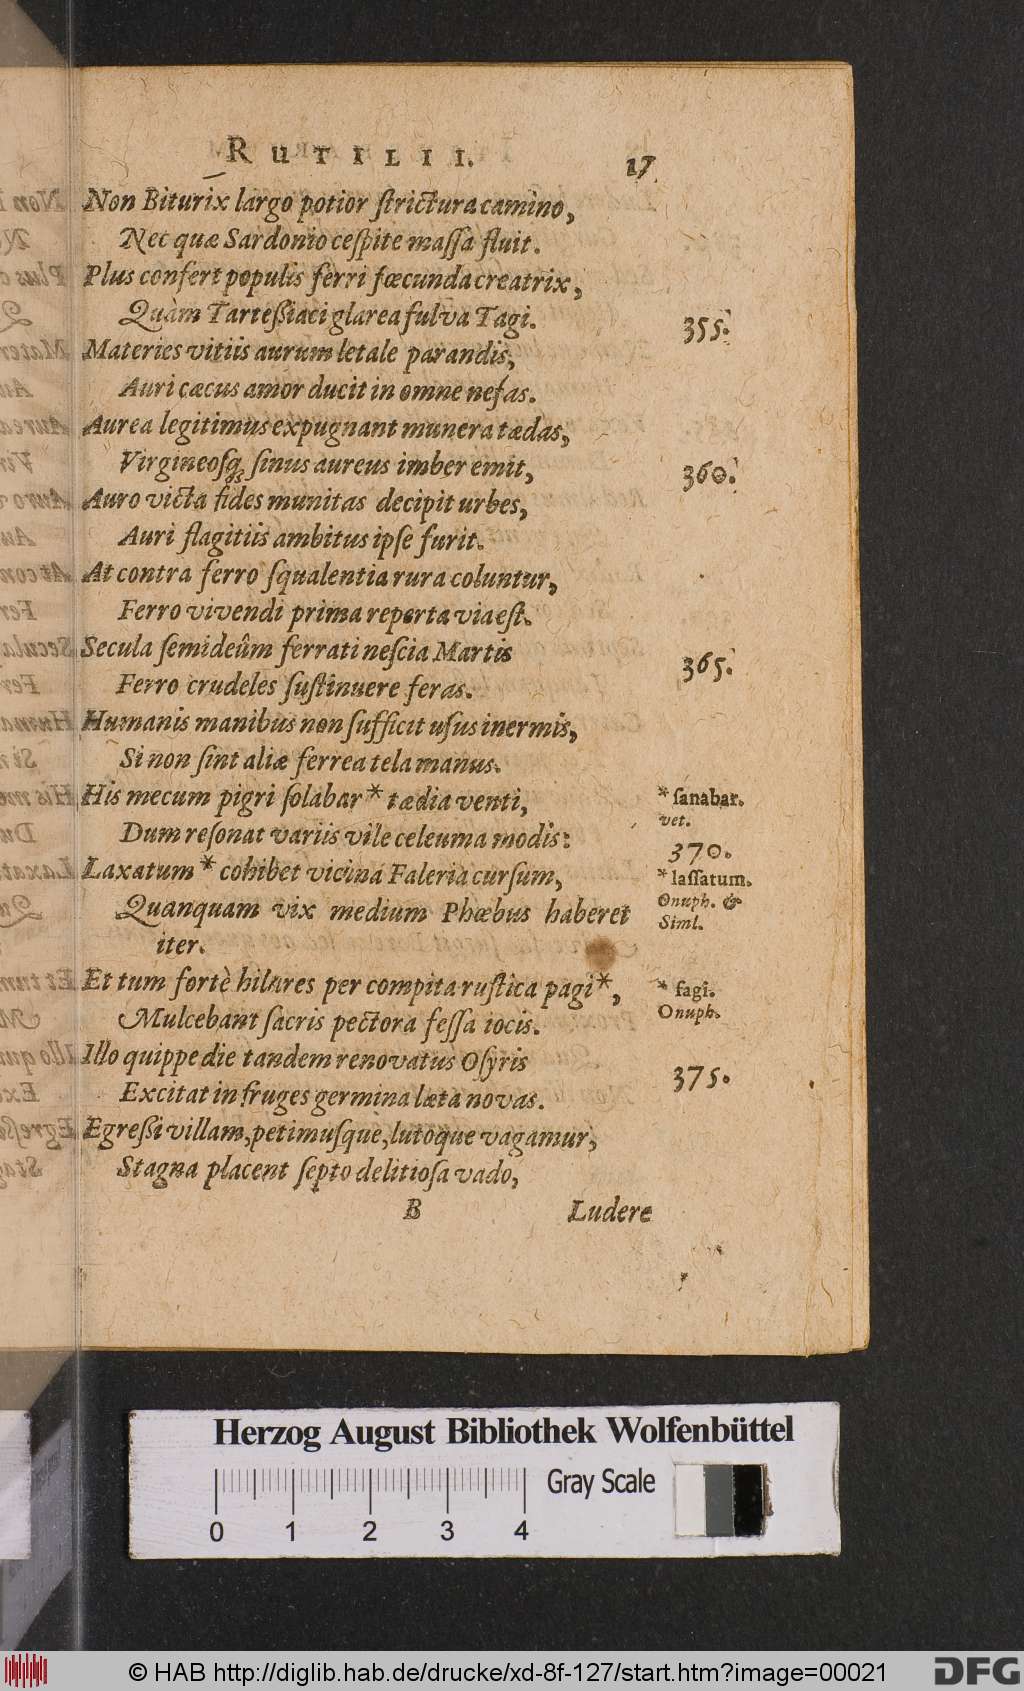 RUTILII I. 17
Non Biturix largo potior strictura camino,
Nec quæ Sardonio cespite massa fluit.
Plus confert populis ferri fœcunda creatrix,
Quàm Tartessiaci glarea fulva Tagi. 355.
Materies vitiis aurum letale parandis,
Auri cæcus amor ducit in omne nefas.
Aurea legitimus expugnant munera tædas,
Virgineosq; sinus aureus imber emit, 360.
Auro victa fides munitas decipit urbes,
Auri flagitiis ambitus ipse furit.
At contra ferro squalentia rura coluntur,
Ferro vivendi prima reperta via est.
Secula semideûm ferrati nescia Martis 365.
Ferro crudeles sustinuere feras.
Humanis manibus non sufficit usus inermis,
Si non sint aliæ ferrea tela manus.
His mecum pigri solabar * tædia venti, * sanabar.
vet.
Dum resonat variis vile celeuma modis: 370.
Laxatum * cohibet vicina Faleria cursum, * lassatum.
Onuph. &
Quanquam vix medium Phœbus haberet
Siml.
iter.
Et tum fortè hilares per compita rustica pagi *, * fagi.
Onuph.
Mulcebant sacris pectora fessa iocis.
Illo quippe die tandem renovatus Osyris 375.
Excitat in fruges germina læta novas.
Egressi villam, petimusque, lutoque vagamur,
Stagna placent septo delitiosa vado,
B Ludere
Herzog August Bibliothek Wolfenbüttel
Gray Scale
0 1 2 3 4
© HAB http://diglib.hab.de/drucke/xd-8f-127/start.htm?image=00021
DFG